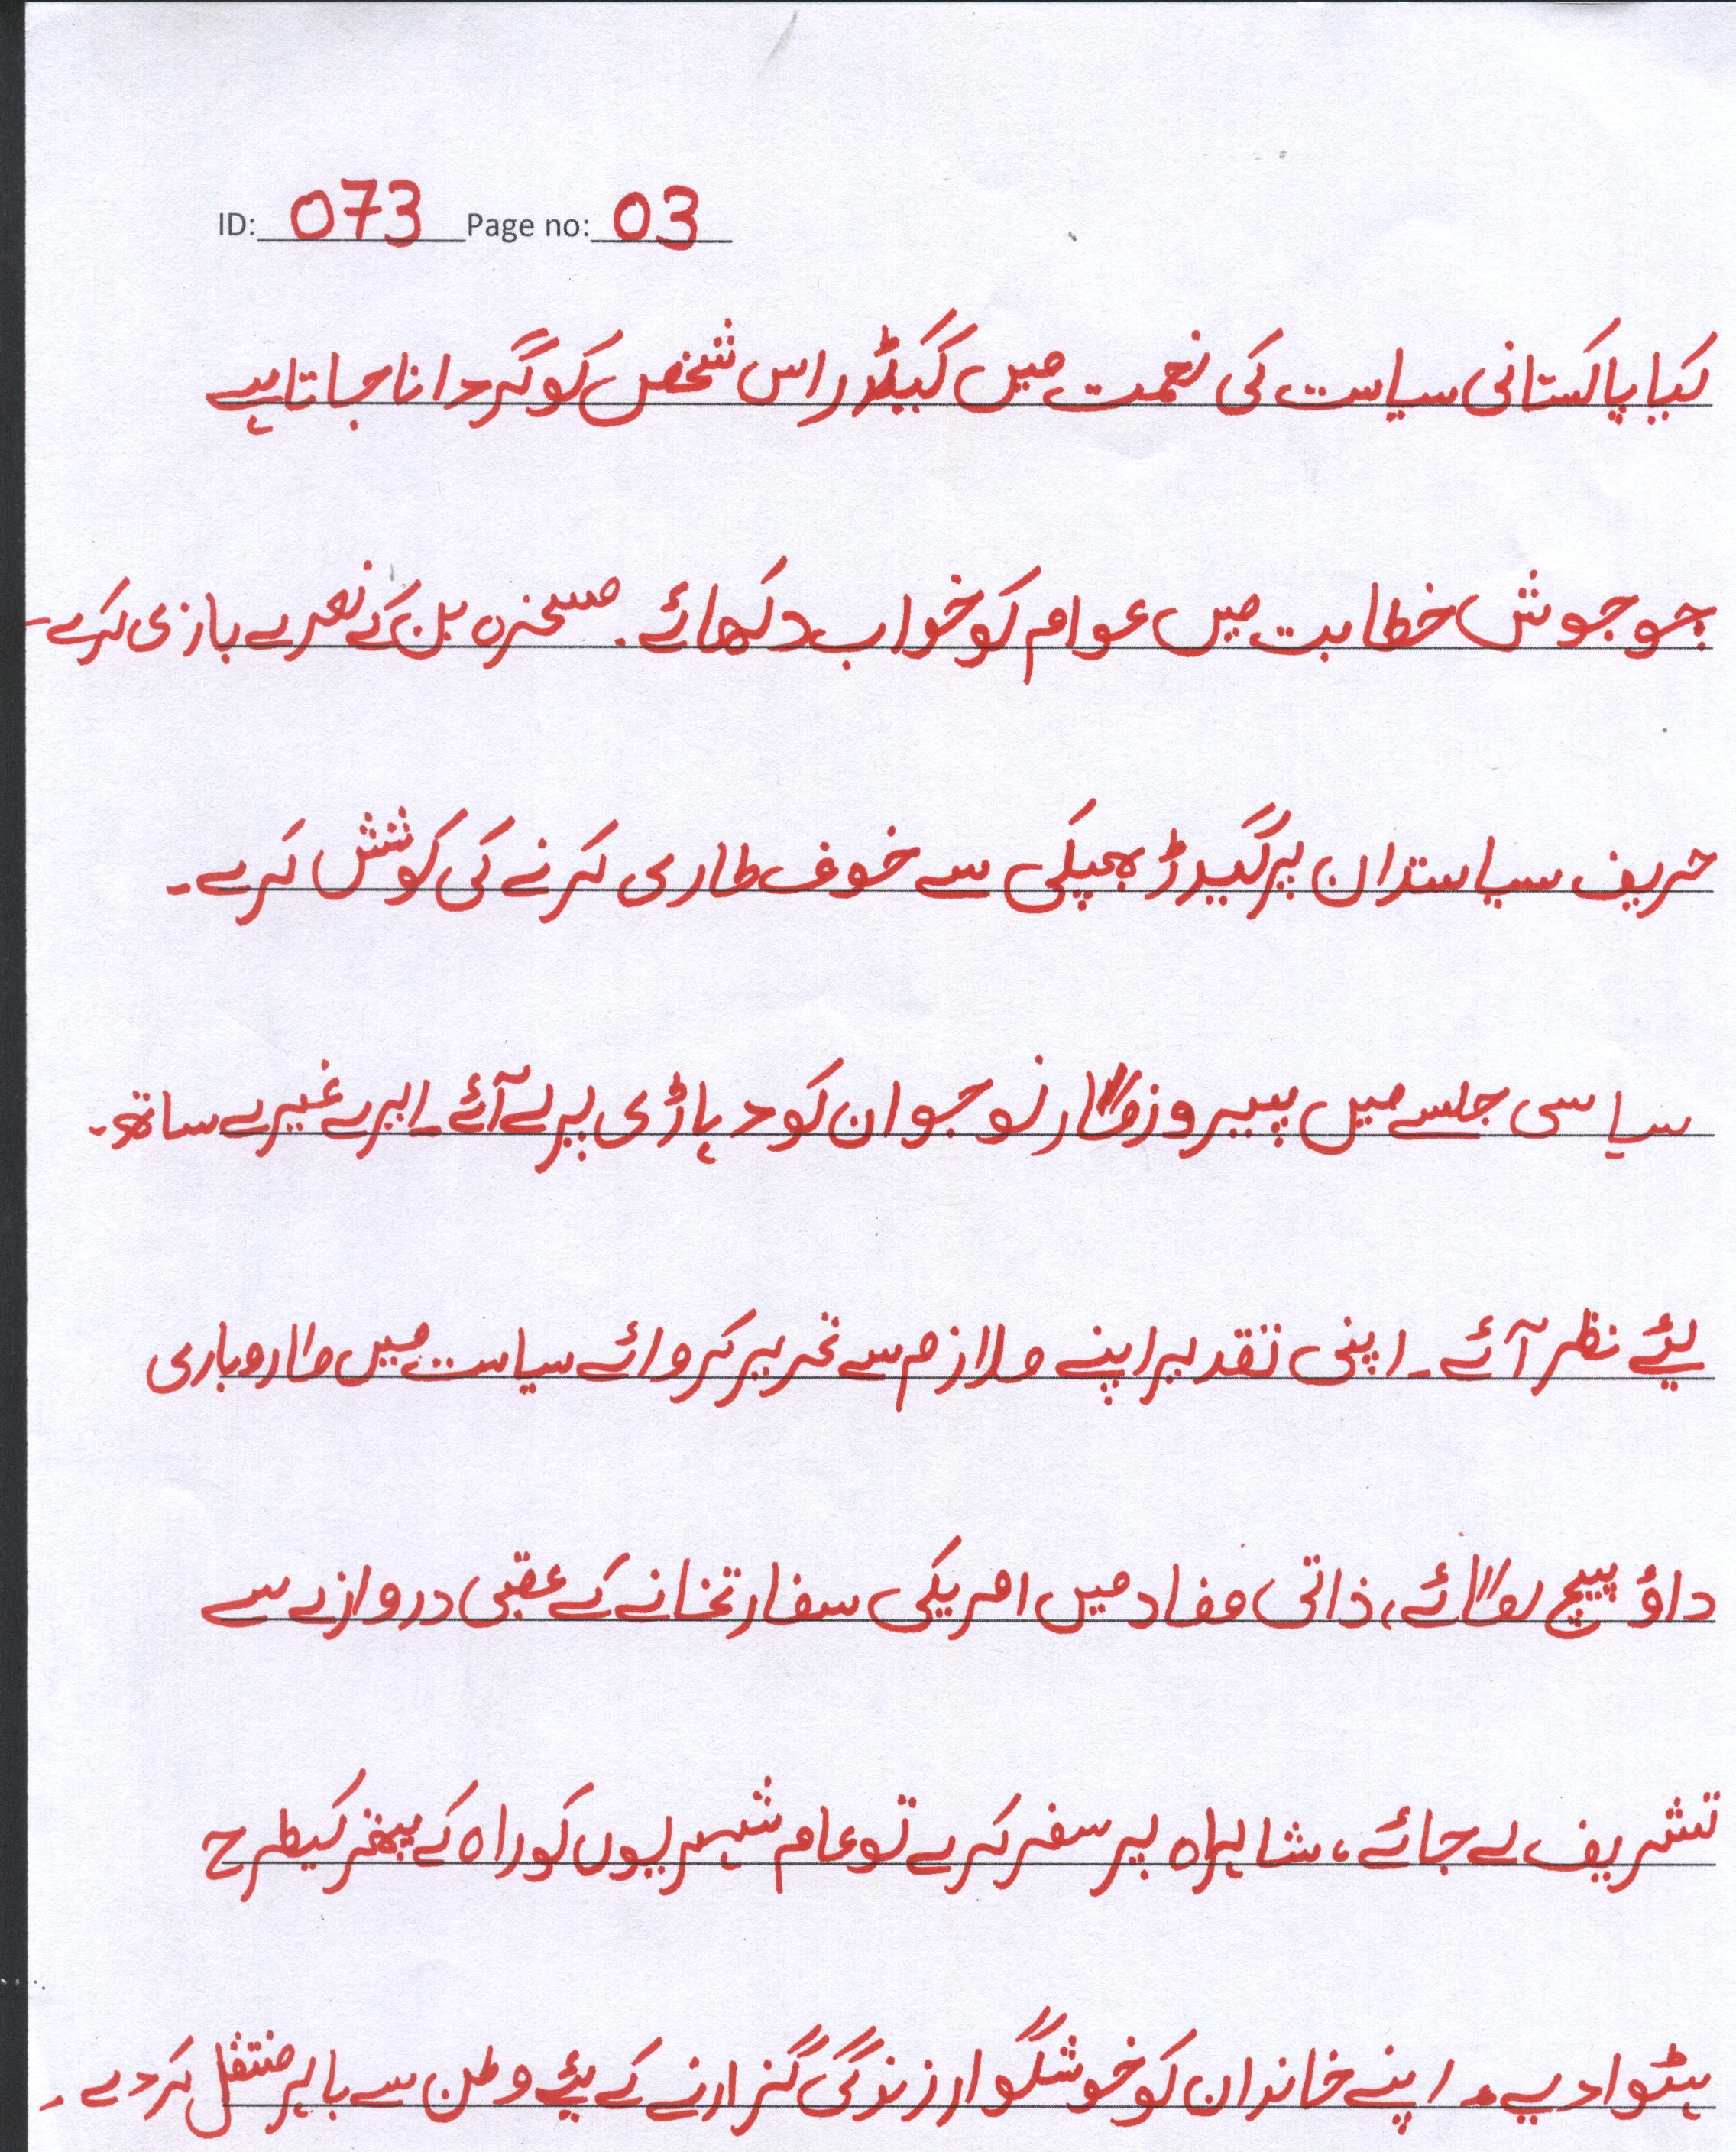 ID: 073 Page no: 03
کیا پاکستانی سیاست کی نعمت میں گیڈر اس شخص کو گردانا جاتا ہے
جو جوش خطابت میں عوام کو خواب دکھائے۔ مسخرہ بن کے نعرے بازی کرے۔
حریف سیاستدان پر گیدڑ بھپکی سے خوف طاری کرنے کی کوشش کرے۔
سیاسی جلسے میں بیروزگار نوجوان کو دہاڑی پر لے آئے۔ ایرے غیرے ساتھ۔
لئے نظر آئے۔ اپنی تقدیر اپنے ملازم سے تحریر کروائے سیاست میں کاروباری
داؤ پیچ لگائے، ذاتی مفاد میں امریکی سفارتخانے کے عقبی دروازے سے
تشریف لے جائے، شاہراہ پر سفر کرے تو عام شہریوں کو راہ کے پتھر کیطرح
ہٹوا دے۔ اپنے خاندان کو خوشگوار زندگی گزارنے کے لئے وطن سے باہر منتقل کردے۔